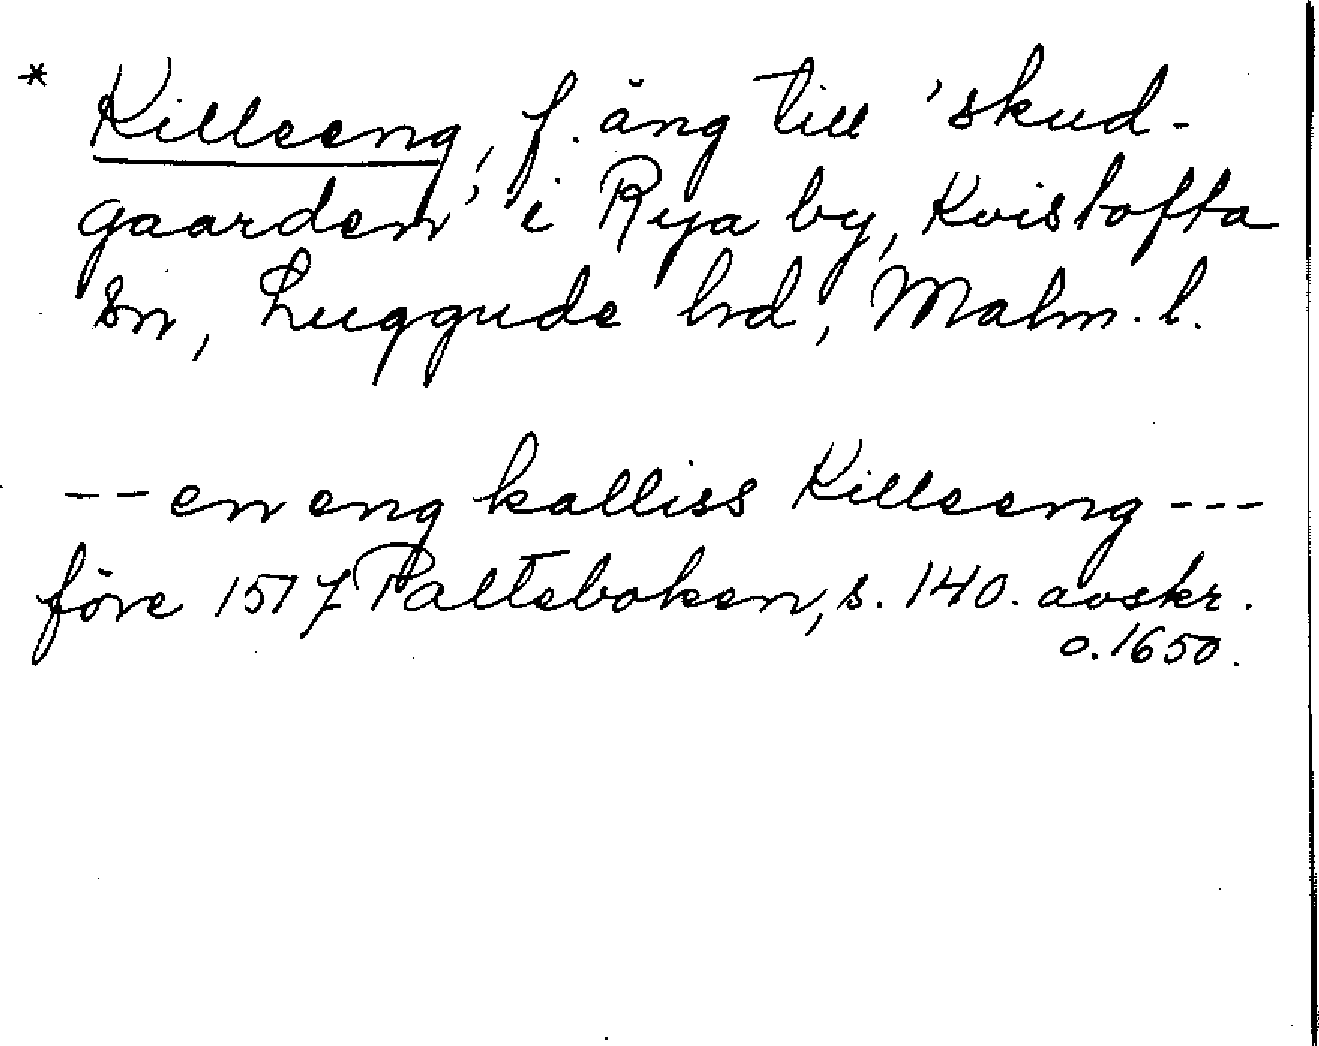 * Killeeng, f. äng till 'skud-
gaarden' i Rya by, Kvistofta
sn, Luggude hd, Malm. l.
-- en eng kalliss Killeeng ---
före 1517 Palteboken, s. 140. avskr.
o. 1650.